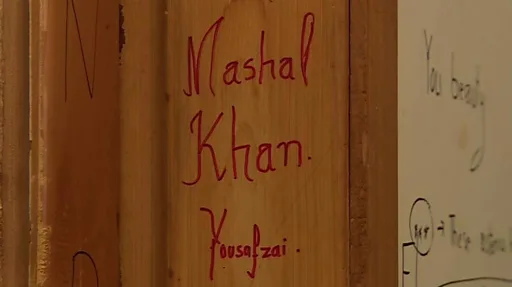 Mashal
Khan.
Yousafzai.
You beauty
These